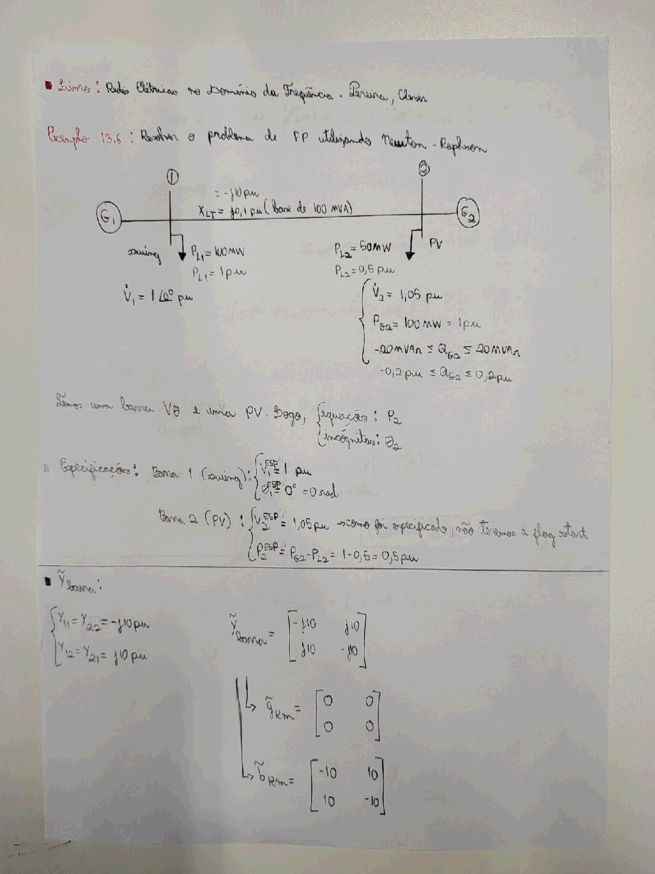 Livro: Redes Elétricas no Domínio da Freqüência. Pereira, Clever
Exemplo 13.6: Resolver o problema de FP utilizando Newton-Raphson
① ②
= -j10 pu
X_LT = j0,1 pu (base de 100 MVA)
G₁ G₂
swing P_L1 = 100 MW P_L2 = 50 MW PV
P_L1 = 1 pu P_L2 = 0,5 pu
V̇₁ = 1∠0° pu V̇₂ = 1,05 pu
P_G2 = 100 MW = 1 pu
-20 MVAr ≤ Q_G2 ≤ 20 MVAr
-0,2 pu ≤ Q_G2 ≤ 0,2 pu
Temos uma barra Vθ e uma PV. Logo, equações: P₂
incógnitas: θ₂
Especificações: Barra 1 (swing): V₁^ESP = 1 pu
θ₁^ESP = 0° = 0 rad
Barra 2 (PV): V₂^ESP = 1,05 pu → como foi especificado, não teremos o flag start
P₂^ESP = P_G2 - P_L2 = 1 - 0,5 = 0,5 pu
Ỹ barra:
Y₁₁ = Y₂₂ = -j10 pu
Y₁₂ = Y₂₁ = j10 pu
Ỹ barra = [ -j10 j10
j10 -j10 ]
g̃ km = [ 0 0
0 0 ]
b̃ km = [ -10 10
10 -10 ]